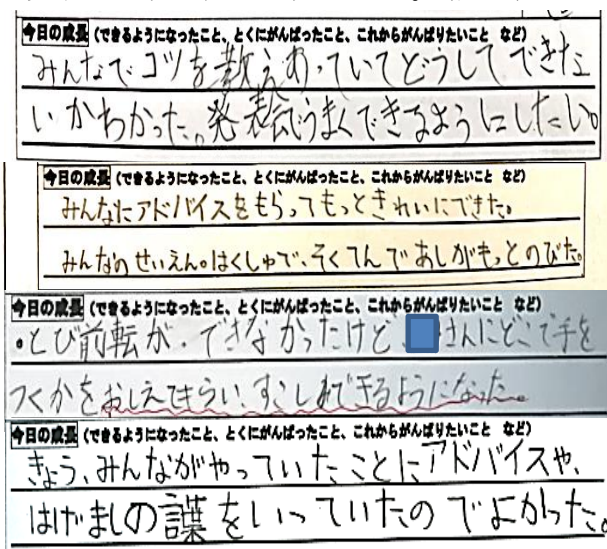 今日の成長 (できるようになったこと、とくにがんばったこと、これからがんばりたいこと など)
みんなでコツを教えあっていてどうしてできた
いかわかった。発表会でうまくできるようにしたい。
今日の成長 (できるようになったこと、とくにがんばったこと、これからがんばりたいこと など)
みんなにアドバイスをもらってもっときれいにできた。
みんなのせいえん。はくしゅで、そくてんであしがもっとのびた。
今日の成長 (できるようになったこと、とくにがんばったこと、これからがんばりたいこと など)
・とび前転が・できなかったけど さんにどこで手を
つくかをおしえてもらい、すこしできるようになった。
今日の成長 (できるようになったこと、とくにがんばったこと、これからがんばりたいこと など)
きょう、みんながやっていたことにアドバイスや、
はげましの言葉をいっていたのでよかった。